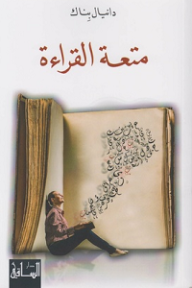 دانيال بناك
متعة القراءة
الساقي